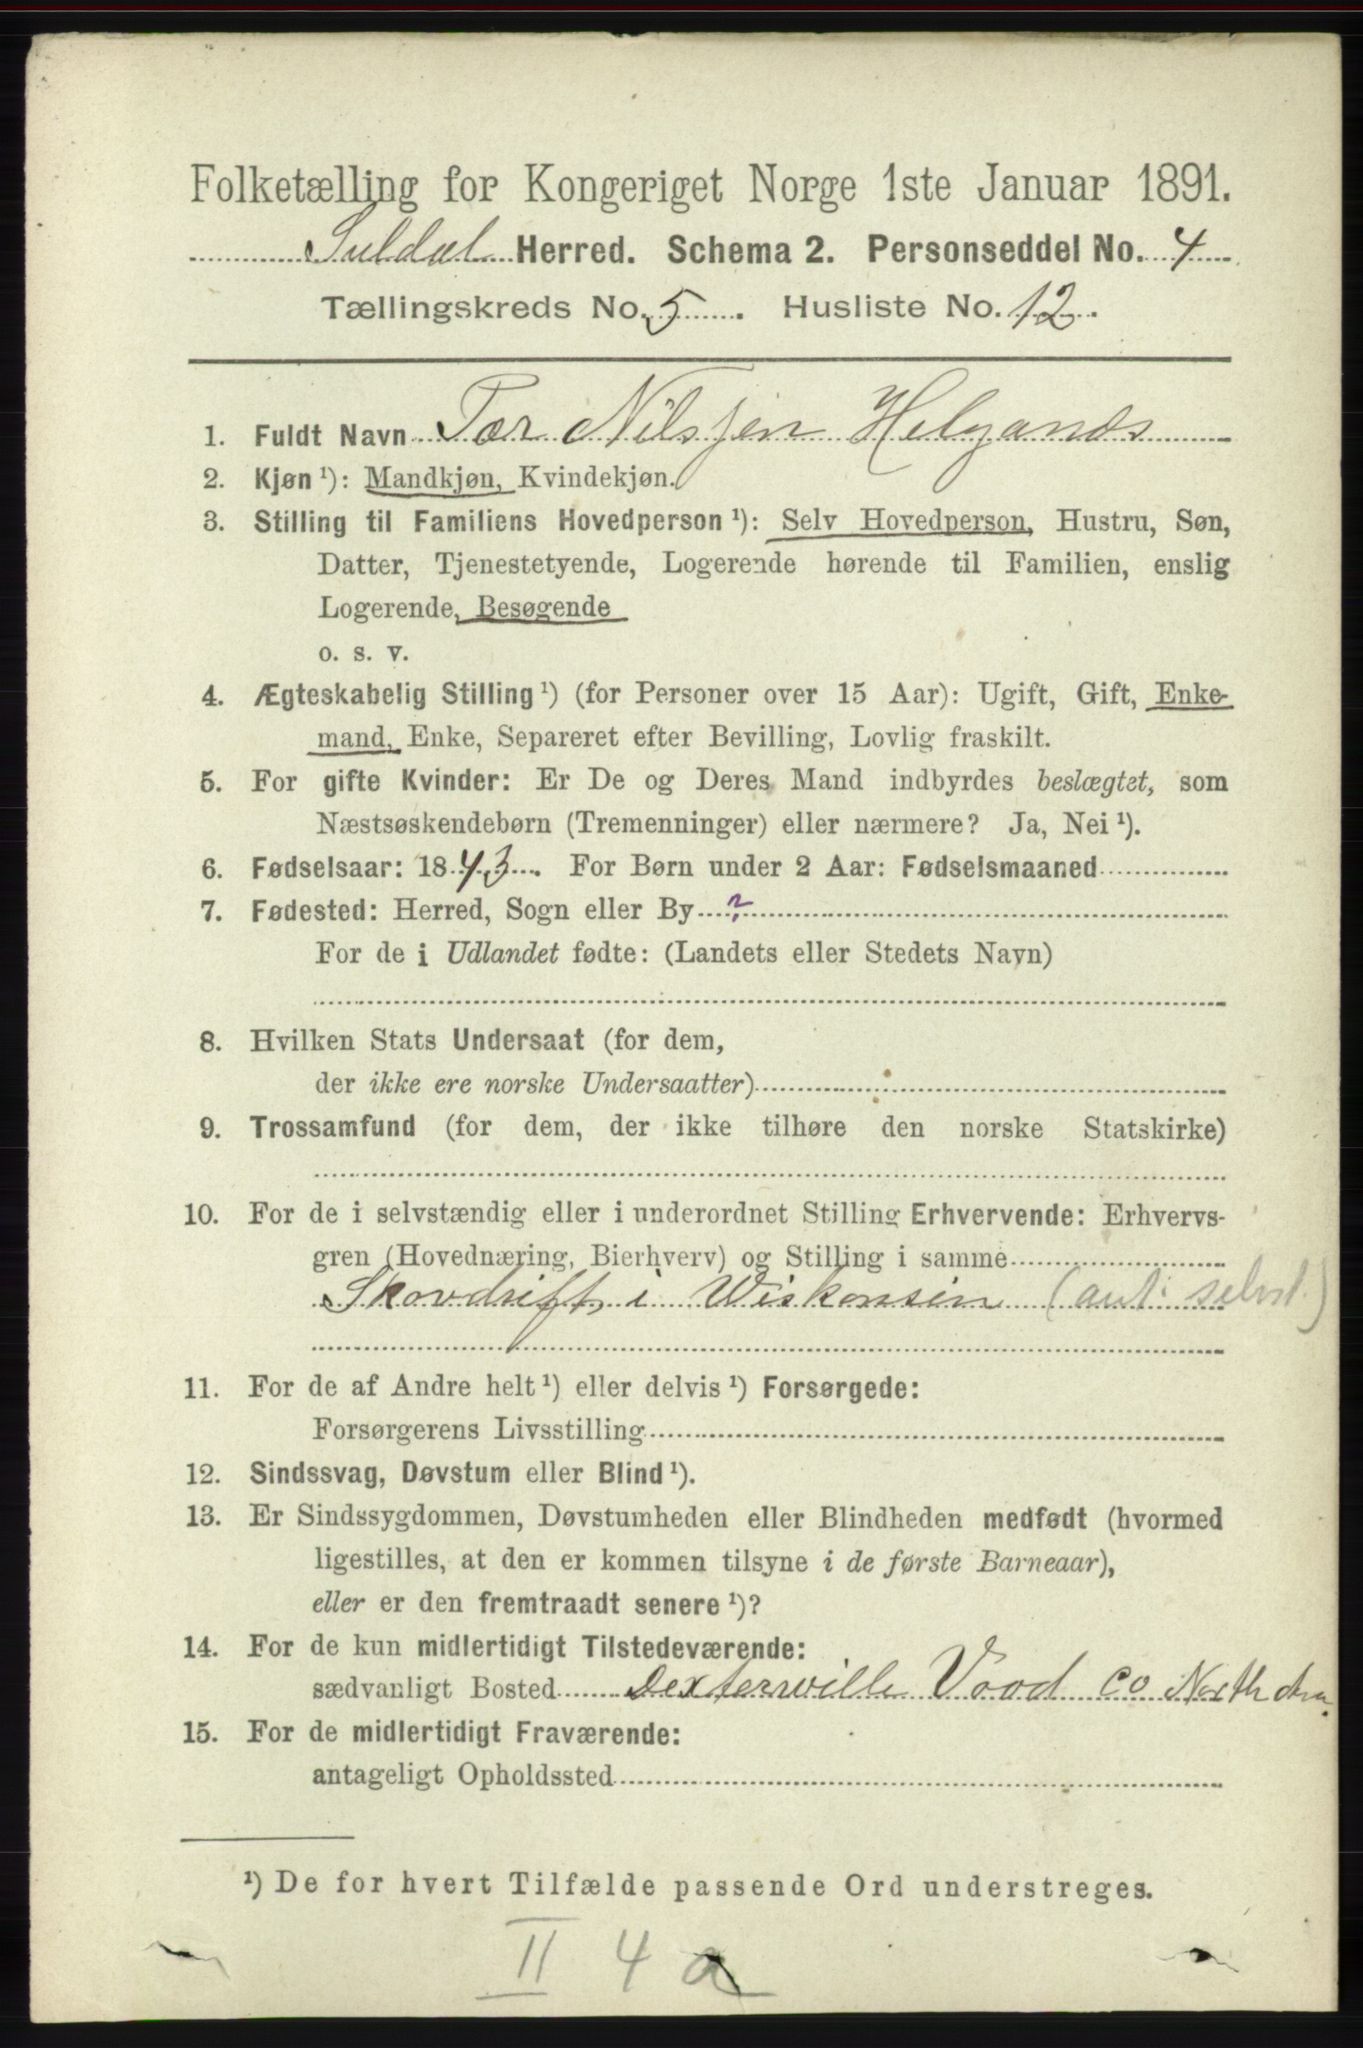 Folketælling for Kongeriget Norge 1ste Januar 1891.
Suldal Herred. Schema 2. Personseddel No. 4
Tællingskreds No. 5. Husliste No. 12.
1. Fuldt Navn Tor Nilsjen Helgands
2. Kjøn ¹): Mandkjøn, Kvindekjøn.
3. Stilling til Familiens Hovedperson ¹): Selv Hovedperson, Hustru, Søn,
Datter, Tjenestetyende, Logerende hørende til Familien, enslig
Logerende, Besøgende
o. s. v.
4. Ægteskabelig Stilling ¹) (for Personer over 15 Aar): Ugift, Gift, Enke-
mand, Enke, Separeret efter Bevilling, Lovlig fraskilt.
5. For gifte Kvinder: Er De og Deres Mand indbyrdes beslægtet, som
Næstsøskendebørn (Tremenninger) eller nærmere? Ja, Nei ¹).
6. Fødselsaar: 1843. For Børn under 2 Aar: Fødselsmaaned
7. Fødested: Herred, Sogn eller By ?
For de i Udlandet fødte: (Landets eller Stedets Navn)
8. Hvilken Stats Undersaat (for dem,
der ikke ere norske Undersaatter)
9. Trossamfund (for dem, der ikke tilhøre den norske Statskirke)
10. For de i selvstændig eller i underordnet Stilling Erhvervende: Erhvervs-
gren (Hovednæring, Bierhverv) og Stilling i samme
Skovdrift i Wiskonsin (ant. selvst.)
11. For de af Andre helt ¹) eller delvis ¹) Forsørgede:
Forsørgerens Livsstilling
12. Sindssvag, Døvstum eller Blind ¹).
13. Er Sindssygdommen, Døvstumheden eller Blindheden medfødt (hvormed
ligestilles, at den er kommen tilsyne i de første Barneaar),
eller er den fremtraadt senere ¹)?
14. For de kun midlertidigt Tilstedeværende:
sædvanligt Bosted Dexterwille Vood co North
15. For de midlertidigt Fraværende:
antageligt Opholdssted
¹) De for hvert Tilfælde passende Ord understreges.
II 4 a